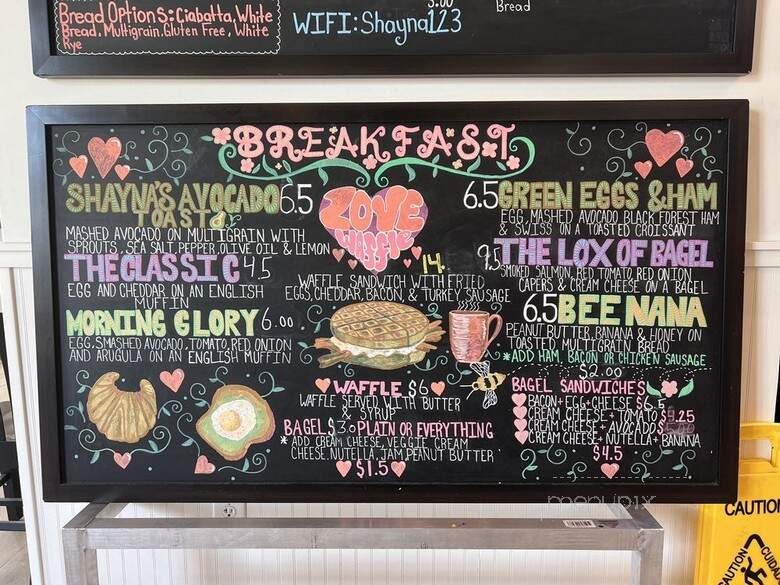 5.00
Bread
Bread Options: Ciabatta, White
Bread, Multigrain, Gluten Free, White
Rye
WIFI: Shayna123
BREAKFAST
SHAYNA'S AVOCADO 6.5
TOAST
MASHED AVOCADO ON MULTIGRAIN WITH
SPROUTS, SEA SALT, PEPPER, OLIVE OIL & LEMON
THE CLASSIC 4.5
EGG AND CHEDDAR ON AN ENGLISH
MUFFIN
MORNING GLORY 6.00
EGG, SMASHED AVOCADO, TOMATO, RED ONION
AND ARUGULA ON AN ENGLISH MUFFIN
LOVE
Waffle
14.
WAFFLE SANDWICH WITH FRIED
EGGS, CHEDDAR, BACON, & TURKEY SAUSAGE
WAFFLE $6
WAFFLE SERVED WITH BUTTER
& SYRUP
BAGEL $3.0 PLAIN OR EVERYTHING
* ADD CREAM CHEESE, VEGGIE CREAM
CHEESE, NUTELLA, JAM, PEANUT BUTTER
$1.5
6.5 GREEN EGGS & HAM
EGG, MASHED AVOCADO, BLACK FOREST HAM
& SWISS ON A TOASTED CROISSANT
9.5 THE LOX OF BAGEL
SMOKED SALMON, RED TOMATO, RED ONION
CAPERS & CREAM CHEESE ON A BAGEL
6.5 BEE NANA
PEANUT BUTTER, BANANA & HONEY ON
TOASTED MULTIGRAIN BREAD
*ADD HAM, BACON OR CHICKEN SAUSAGE
$2.00
BAGEL SANDWICHES
BACON + EGG + CHEESE $6.5
CREAM CHEESE + TOMATO $ 3.25
CREAM CHEESE + AVOCADO $
CREAM CHEESE + NUTELLA + BANANA
$4.5
menupix
CAUTION
CAUTION
CUIDA